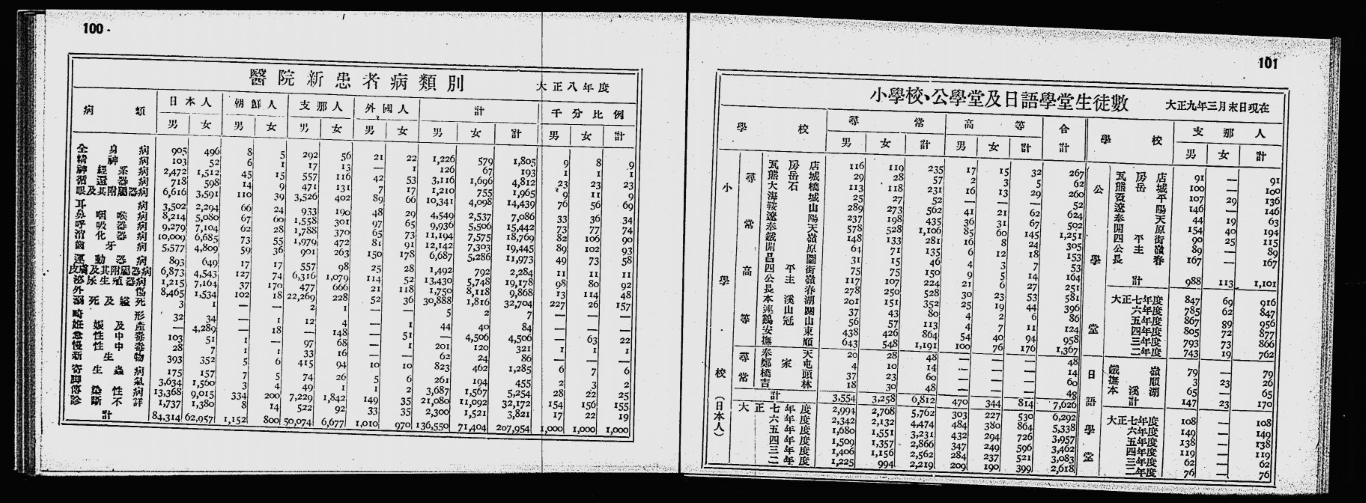 100
醫院新患者病類別 大正八年度
病類 日本人 朝鮮人 支那人 外國人 計 千分比例
男 女 男 女 男 女 男 女 男 女 計 男 女 計
全身病 905 496 8 5 292 56 21 22 1,226 579 1,805 9 8 9
精神病 103 52 6 1 17 13 — 1 126 67 193 1 1 1
神經系病 2,472 1,512 45 15 557 116 42 53 3,116 1,696 4,812 23 23 23
循環器病 718 598 14 9 471 131 7 17 1,210 755 1,965 9 11 9
眼及其附屬器病 6,616 3,591 110 39 3,526 402 89 66 10,341 4,098 14,439 76 56 69
耳病 3,502 2,294 66 24 933 190 48 29 4,549 2,537 7,086 33 36 34
鼻咽喉病 8,214 5,080 67 60 1,558 301 97 65 9,936 5,506 15,442 73 77 74
呼吸器病 9,279 7,104 62 28 1,788 370 65 73 11,194 7,575 18,769 82 106 90
消化器病 10,009 6,685 73 55 1,979 472 81 91 12,142 7,303 19,445 89 102 93
齒牙病 5,577 4,809 59 36 901 263 150 178 6,687 5,286 11,973 49 73 58
運動器病 893 649 17 17 557 98 25 28 1,492 792 2,284 11 11 11
皮膚及其附屬器病 6,873 4,543 127 74 6,316 1,079 114 52 13,430 5,748 19,178 98 80 92
泌尿生殖器病 1,215 7,164 37 170 477 666 21 118 1,750 8,118 9,868 13 114 48
外傷 8,465 1,534 102 18 22,269 228 52 36 30,888 1,816 32,704 227 26 157
溺死及縊死 3 1 — — 2 1 — — 5 2 7 — — —
畸形 32 34 — — 12 4 — 1 44 40 84 — — —
姙娠及產 — 4,289 — 18 — 148 — 51 — 4,506 4,506 — 63 22
急性中毒 103 51 1 — 97 68 — 1 201 120 321 1 1 1
慢性中毒 28 7 1 — 33 16 — — 62 24 86 — — —
新生物 393 352 5 6 415 94 10 10 823 462 1,285 6 7 6
寄生蟲病 175 157 7 5 74 26 5 6 261 194 455 2 3 2
脚氣 3,634 1,560 3 4 49 1 1 2 3,687 1,567 5,254 28 22 25
傳染性病 13,368 9,015 334 200 7,229 1,842 149 35 21,080 11,092 32,172 154 156 155
診斷不詳 1,737 1,380 8 14 522 92 33 35 2,300 1,521 3,821 17 22 19
計 84,314 62,957 1,152 800 50,074 6,677 1,010 970 136,550 71,404 207,954 1,000 1,000 1,000
101
小學校、公學堂及日語學堂生徒數 大正九年三月末日現在
學校 尋常 高等 合計
男 女 計 男 女 計
小學校(日本人)
尋常高等
瓦房店 116 119 235 17 15 32 267
熊岳城 29 28 57 2 3 5 62
大石橋 113 118 231 16 13 29 260
海城 25 27 52 — — — 52
鞍山 289 273 562 41 21 62 624
遼陽 237 198 435 36 31 67 502
奉天 578 528 1,106 85 60 145 1,251
鐵嶺 148 133 281 16 8 24 305
開原 64 71 135 6 12 18 153
昌圖 31 15 46 4 3 7 53
四平街 75 75 150 9 5 14 164
公主嶺 117 107 224 21 6 27 251
長春 278 250 528 30 23 53 581
本溪湖 201 151 352 25 19 44 396
連山關 37 43 80 4 2 6 86
鷄冠山 56 57 113 4 7 11 124
安東 438 426 864 54 40 94 958
撫順 643 548 1,191 100 76 176 1,367
尋常
奉天 20 28 48 — — — 48
鄭家屯 4 10 14 — — — 14
橋頭 37 23 60 — — — 60
吉林 18 30 48 — — — 48
計 3,554 3,258 6,812 470 344 814 7,626
大正七年度 2,994 2,768 5,762 303 227 530 6,292
六年度 2,342 2,132 4,474 484 380 864 5,338
五年度 1,680 1,551 3,231 432 294 726 3,957
四年度 1,509 1,357 2,866 347 249 596 3,462
三年度 1,406 1,156 2,562 284 237 521 3,083
二年度 1,225 994 2,219 209 190 399 2,618
學校 支那人
男 女 計
公學堂
瓦房店 91 — 91
熊岳城 100 — 100
蓋平 107 29 136
遼陽 146 — 146
奉天 44 19 63
開原 154 40 194
四平街 90 25 115
公主嶺 89 — 89
長春 167 — 167
計 988 113 1,101
大正七年度 847 69 916
六年度 785 62 847
五年度 867 89 956
四年度 805 72 877
三年度 793 73 866
二年度 743 19 762
日語學堂
鐵嶺 79 — 79
撫順 3 23 26
本溪湖 65 — 65
計 147 23 170
大正七年度 108 — 108
六年度 149 — 149
五年度 138 — 138
四年度 119 — 119
三年度 62 — 62
二年度 76 — 76